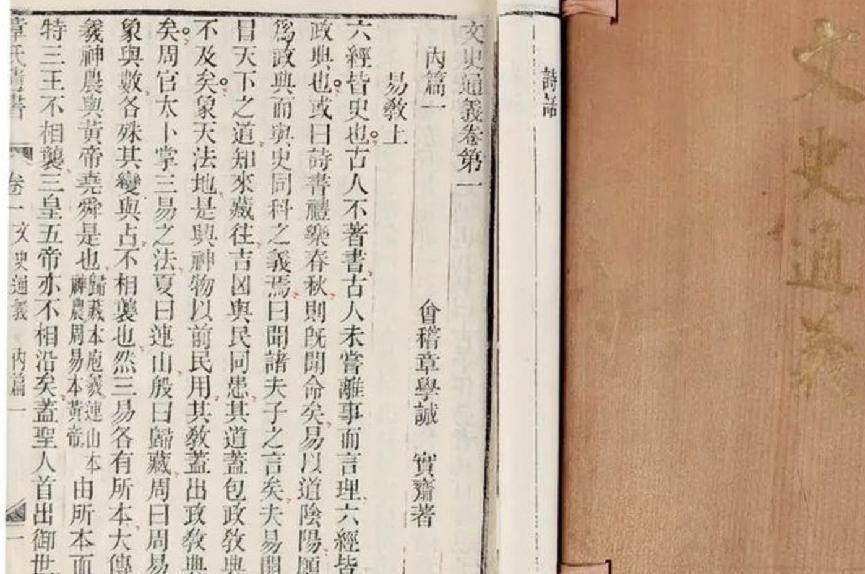 文史通義
詩話
文史通義卷第一
內篇一
會稽章學誠 實齋著
易敎上
六經皆史也古人不著書古人未嘗離事而言理六經皆
政典也或曰詩書禮樂春秋則旣聞命矣易以道陰陽願
爲政典而與史同科之義焉曰聞諸夫子之言矣夫易開
冒天下之道知來藏往吉凶與民同患其道蓋包政敎典
不及矣象天法地是與神物以前民用其敎蓋出政敎典
矣周官太卜掌三易之法夏曰連山殷曰歸藏周曰周易
象與數各殊其變與占不相襲也然三易各有所本大傳
羲神農與黃帝堯舜是也歸藏本庖羲連山本神農周易本黃帝由所本而
特三王不相襲三皇五帝亦不相沿矣蓋聖人首出御世
章氏遺書 卷一 文史通義 內篇一 一